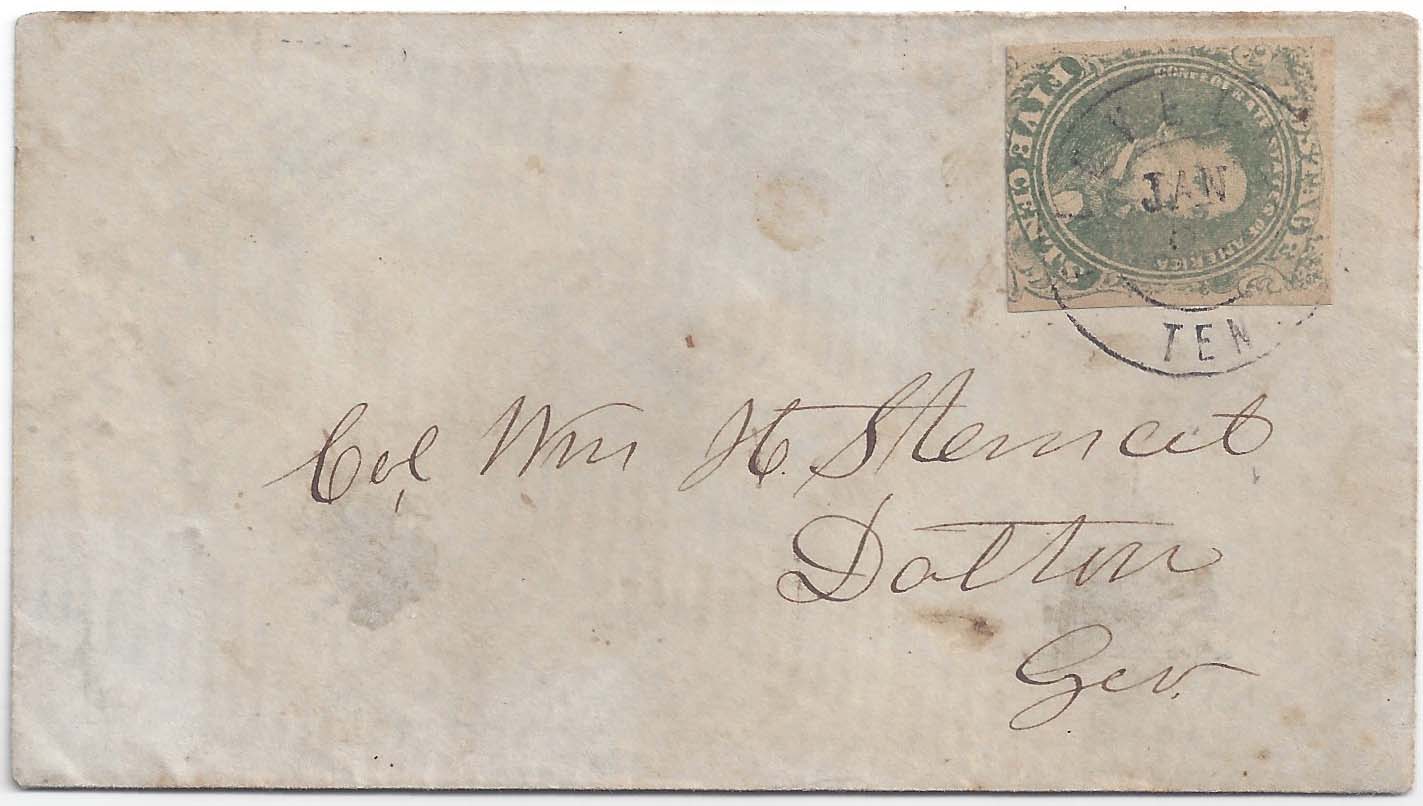 FIVE CENTS
CONFEDERATE STATES OF AMERICA
POSTAGE
JAN
TEN
Col Wm H. Stewart
Dalton
Geo.